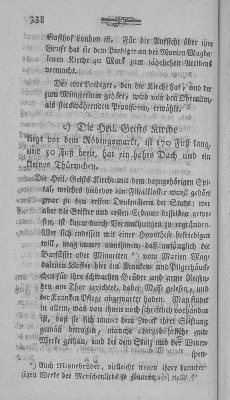 338
Gasthof London ist. Für die Aufsicht über ihre
Gruft hat sie dem Prediger an der Marien Magda-
lenen Kirche 40 Mark zum jährlichen Accidens
vermacht.
Der erste Prediger, den die Kirche hat, und der
zum Ministerium gehört, wird von den Oberalten,
als stetswährenden Provisoren, erwählet.
c) Die Heil. Geists Kirche
liegt vor dem Rödingsmarkt, ist 170 Fuß lang,
und 50 Fuß breit, hat ein hohes Dach und ein
kleines Thürmchen.
Die Heil. Geists Kirche mit dem dazugehörigen Spi-
tal, welches hiebevor ein Filialkloster war, gehört
zwar zu den ersten Denkmälern der Stadt, wer
aber die Stifter und ersten Erbauer desselben gewesen,
ist kaum durch Vermuthungen zu ergründen.
Wer sich indessen mit einer Hypothese befriedigen
will, mag immer annehmen, daß anfänglich die
Barfüßer oder Minoriten *) vom Marien Mag-
dalenen Kloster hier ein Kranken- und Pflegehaus
für ihre schwachen Brüder und
am Thor errichtet, dabei Messe gelesen, und
der Kranken Pflege abgewartet haben. Man findet
in allem, was von ihnen noch schriftlich vorhanden
ist, daß sie immer dem Zweck ihrer Stiftung
gemäß betragen, manche
Werke gethan, und bei dem Stolz und
spen-
*) Auch Minnebrüder, vielleicht wegen ihrer
tigen Werke der Menschenliebe so genannt.